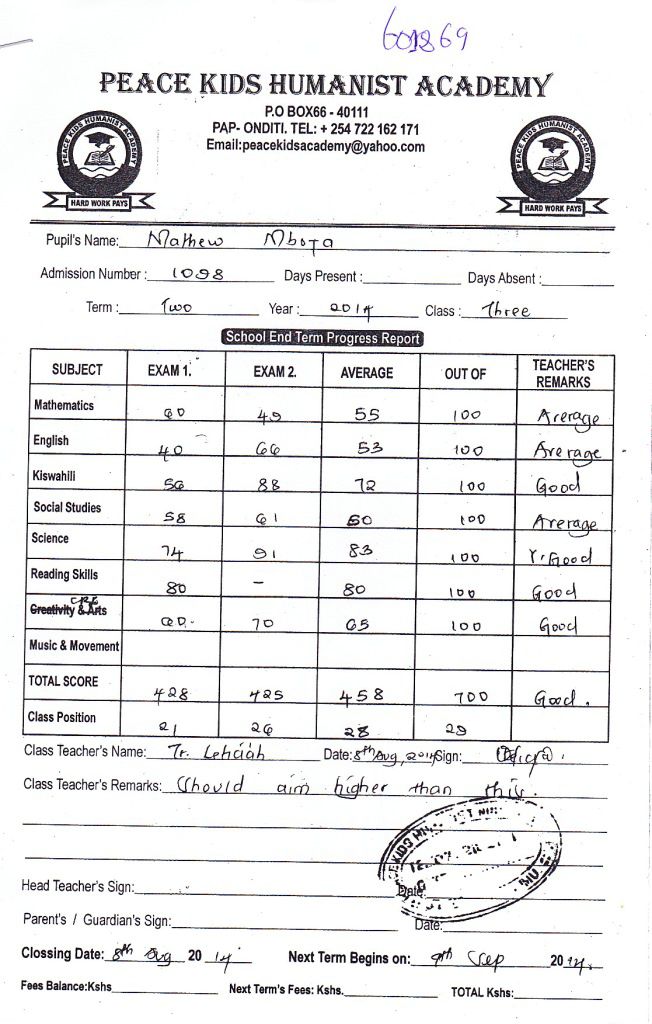 601869
PEACE KIDS HUMANIST ACADEMY
P.O BOX66 - 40111
PAP- ONDITI. TEL: + 254 722 162 171
Email:peacekidsacademy@yahoo.com
PEACE KIDS HUMANIST ACADEMY PEACE KIDS HUMANIST ACADEMY
HARD WORK PAYS HARD WORK PAYS
Pupil's Name: Mathew Mboya
Admission Number : 1098 Days Present : Days Absent :
Term : Two Year : 2014 Class : Three
School End Term Progress Report
SUBJECT EXAM 1. EXAM 2. AVERAGE OUT OF TEACHER'S REMARKS
Mathematics 60 49 55 100 Average
English 40 66 53 100 Average
Kiswahili 56 88 72 100 Good
Social Studies 58 61 60 100 Average
Science 74 91 83 100 V. Good
Reading Skills 80 – 80 100 Good
CRE
Creativity & Arts 60. 70 65 100 Good
Music & Movement
TOTAL SCORE 428 425 458 700 Good.
Class Position 21 26 28 29
Class Teacher's Name: Tr. Date: 8th Aug, 2014 Sign:
Class Teacher's Remarks: Should aim higher than this.
Head Teacher's Sign: Date:
Parent's / Guardian's Sign: Date:
Clossing Date: 8th Aug 20 14 Next Term Begins on: Sep 2014.
Fees Balance:Kshs Next Term's Fees: Kshs. TOTAL Kshs: